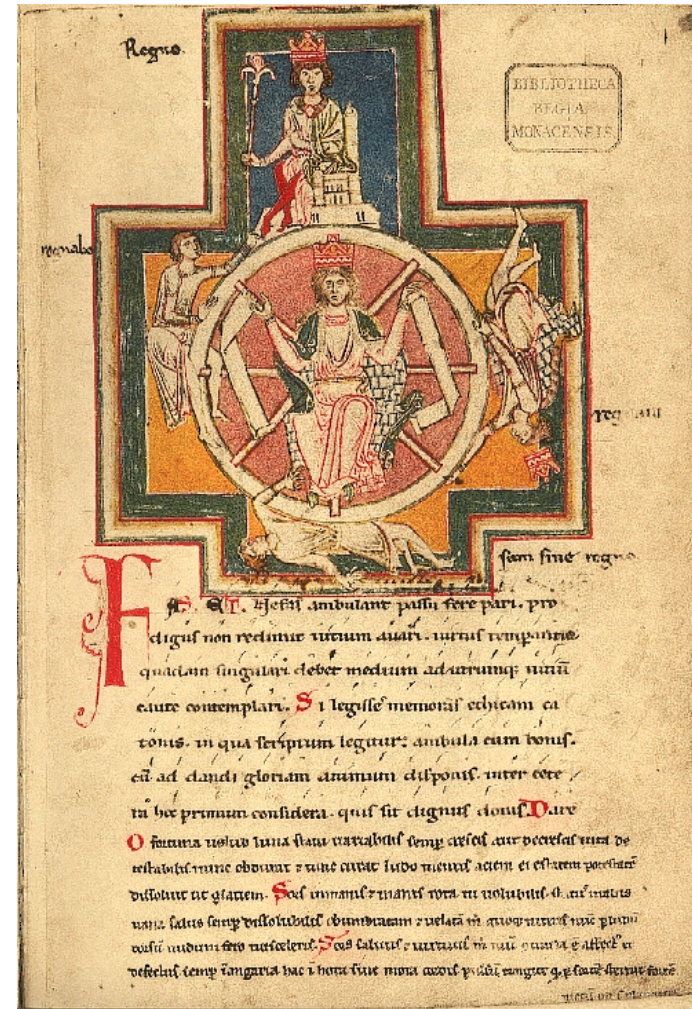 Regno.
BIBLIOTHECA
REGIA
MONACENSIS.
regnabo
regnaui
sum sine regno
FAS ET Nefas ambulant passu fere pari. pro
digus non redimit uitium auari. uirtus temperantia
quadam singulari debet medium ad utrumq; uitiū
caute contemplari. Si legisse memoras ethicam ca
tonis. in qua scriptum legitur: ambula cum bonis.
cū ad dandi gloriam animum disponis. inter cete
ra hoc primum considera. quis sit dignus donis. Dare
O fortuna uelud luna statu uariabilis semp crescis aut decrescis uita de
testabilis nunc obdurat ⁊ tunc curat ludo mentis aciem egestatem potestatē
dissoluit ut glaciem. Sors immanis ⁊ inanis rota tu uolubilis status malus
uana salus semp dissolubilis obumbratam ⁊ uelatā m̄ quoq; niteris nūc p ludū
dorsū nudum fero tui sceleris. Sors salutis ⁊ uirtutis m̄ nūc ɔtraria ē affectꝰ ⁊
defectus semp ī angaria hac ī hora sine mora